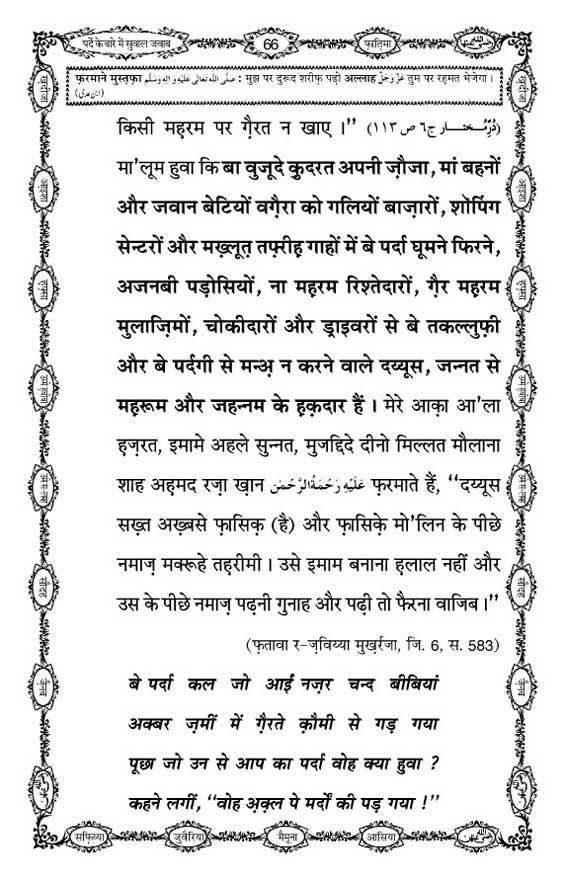 पर्दे के बारे में सुवाल जवाब
66
फ़ातिमा
फ़रमाने मुस्तफ़ा صَلَّى اللهُ تَعَالٰى عَلَيْهِ وَاٰلِهٖ وَسَلَّم : मुझ पर दुरूद शरीफ़ पढ़ो अल्लाह عَزَّوَجَلَّ तुम पर रहमत भेजेगा ।
(ابن عدی)
किसी महरम पर ग़ैरत न खाए ।’’ (دُرِّمُختار ج٦ ص ١١٣)
मा’लूम हुवा कि बा वुजूदे क़ुदरत अपनी ज़ौजा, मां बहनों
और जवान बेटियों वग़ैरा को गलियों बाज़ारों, शॉपिंग
सेन्टरों और मख़्लूत तफ़्रीह गाहों में बे पर्दा घूमने फिरने,
अजनबी पड़ोसियों, ना महरम रिश्तेदारों, ग़ैर महरम
मुलाज़िमों, चोकीदारों और ड्राइवरों से बे तकल्लुफ़ी
और बे पर्दगी से मन्अ़ न करने वाले दय्यूस, जन्नत से
महरूम और जहन्नम के हक़दार हैं । मेरे आक़ा आ’ला
हज़रत, इमामे अहले सुन्नत, मुजद्दिदे दीनो मिल्लत मौलाना
शाह अहमद रज़ा ख़ान عَلَيْهِ رَحْمَةُ الرَّحْمٰن फ़रमाते हैं, ‘‘दय्यूस
सख़्त अख़्बसे फ़ासिक़ (है) और फ़ासिक़े मो’लिन के पीछे
नमाज़ मक्रूहे तहरीमी । उसे इमाम बनाना हलाल नहीं और
उस के पीछे नमाज़ पढ़नी गुनाह और पढ़ी तो फैरना वाजिब ।’’
(फ़तावा र-ज़विय्या मुख़र्रजा, जि. 6, स. 583)
बे पर्दा कल जो आई नज़र चन्द बीबियां
अक्बर ज़मीं में ग़ैरते क़ौमी से गड़ गया
पूछा जो उन से आप का पर्दा वोह क्या हुवा ?
कहने लगीं, ‘‘वोह अ़क़्ल पे मर्दों की पड़ गया !’’
सफ़िय्या
जुवैरिया
मैमूना
आसिया